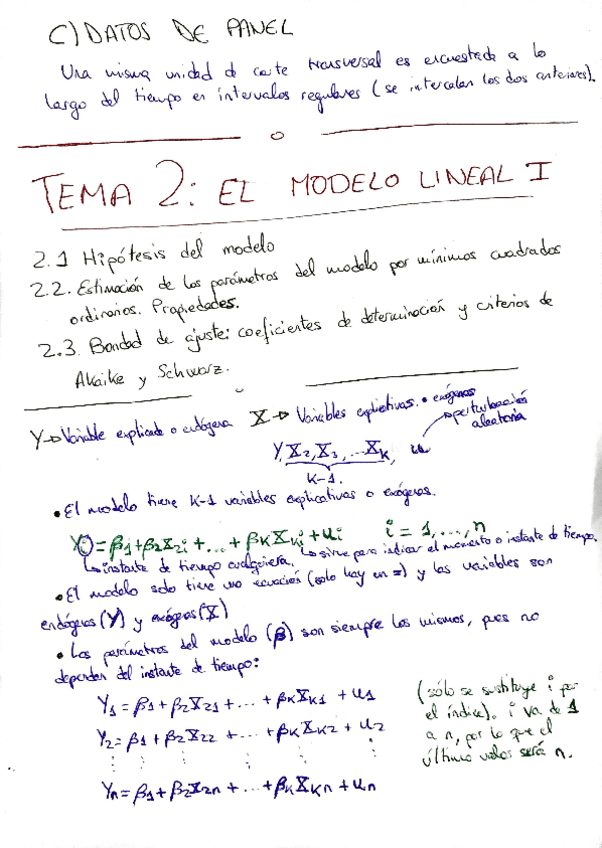 C) DATOS DE PANEL
Una misma unidad de corte transversal es encuestada a lo
largo del tiempo en intervalos regulares (se intercalan los dos anteriores).
TEMA 2: EL MODELO LINEAL I
2.1 Hipótesis del modelo
2.2. Estimación de los parámetros del modelo por mínimos cuadrados
ordinarios. Propiedades.
2.3. Bondad de ajuste: coeficientes de determinación y criterios de
Akaike y Schwarz.
Y→Variable explicada o endógena X→ Variables explicativas. o exógenas
Y, X2, X3, ... Xk, u → perturbación aleatoria
K-1.
• El modelo tiene K-1 variables explicativas o exógenas.
Yi = β1+β2X2i +...+ βKXKi + ui i = 1,...,n
↳ instante de tiempo cualquiera. ↳ sirve para indicar el momento o instante de tiempo.
• El modelo solo tiene una ecuación (solo hay un =) y las variables son
endógenas (Y) y exógenas (X)
• Los parámetros del modelo (β) son siempre los mismos, pues no
dependen del instante de tiempo:
Y1 = β1 + β2X21 +...+ βKXK1 + u1
Y2 = β1 + β2X22 +...+ βKXK2 + u2
Yn = β1 + β2X2n +...+ βKXKn + un
(sólo se sustituye i por
el índice). i va de 1
a n, por lo que el
último valor será n.